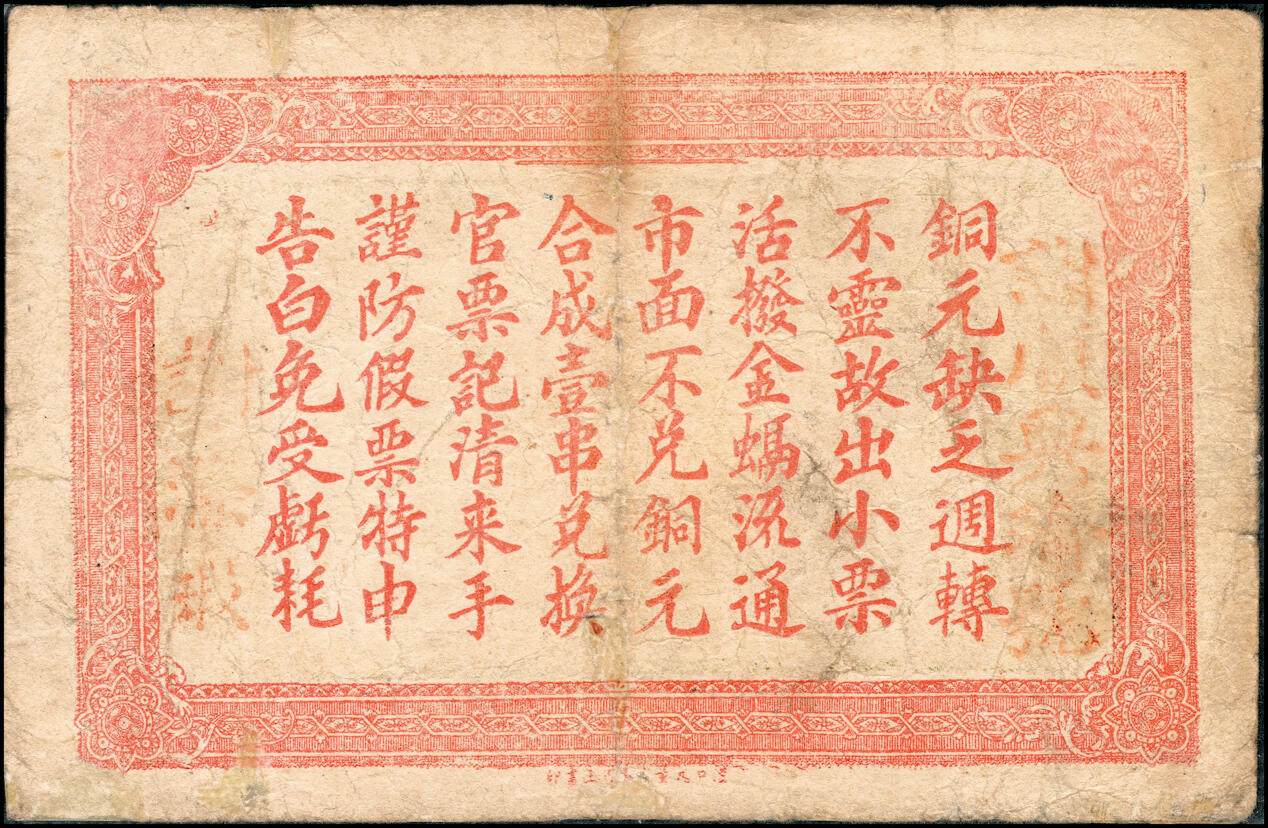 銅元缺乏週轉
不靈故出小票
活撥金螞流通
市面不兑銅元
合成壹串兑換
官票記清来手
謹防假票特申
告白免受虧耗